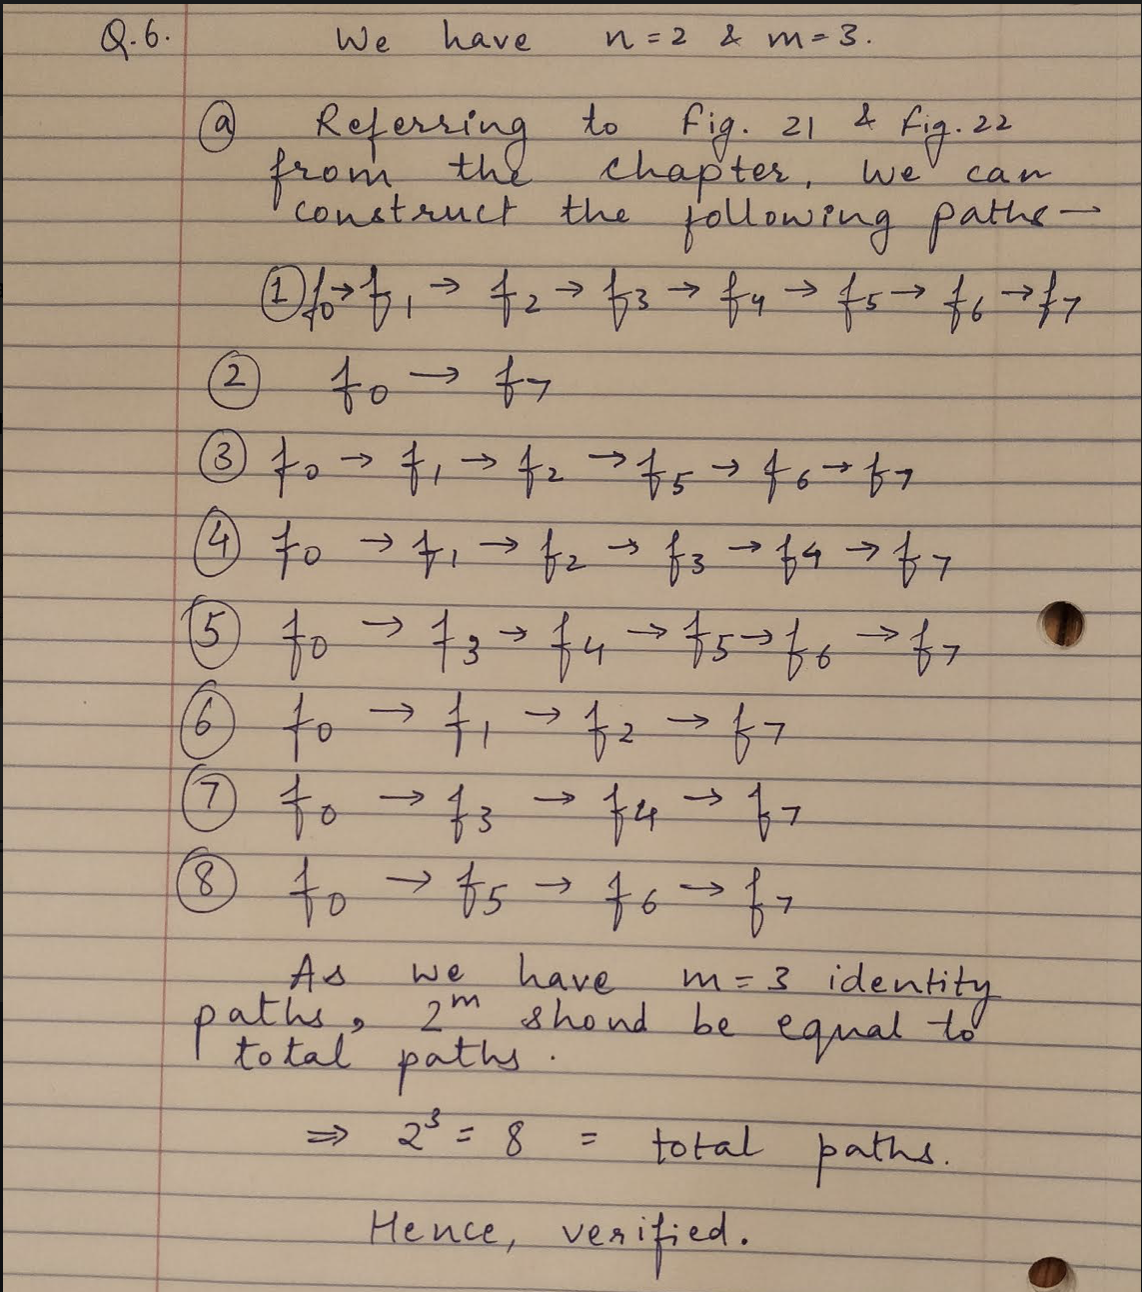 Q.6. We have n=2 & m=3.
ⓐ Referring to Fig. 21 & Fig. 22
from the chapter, we can
construct the following paths →
① f₀ → f₁ → f₂ → f₃ → f₄ → f₅ → f₆ → f₇
② f₀ → f₇
③ f₀ → f₁ → f₂ → f₅ → f₆ → f₇
④ f₀ → f₁ → f₂ → f₃ → f₄ → f₇
⑤ f₀ → f₃ → f₄ → f₅ → f₆ → f₇
⑥ f₀ → f₁ → f₂ → f₇
⑦ f₀ → f₃ → f₄ → f₇
⑧ f₀ → f₅ → f₆ → f₇
As we have m=3 identity
paths, 2ᵐ shoud be equal to
total paths.
⇒ 2³ = 8 = total paths.
Hence, verified.